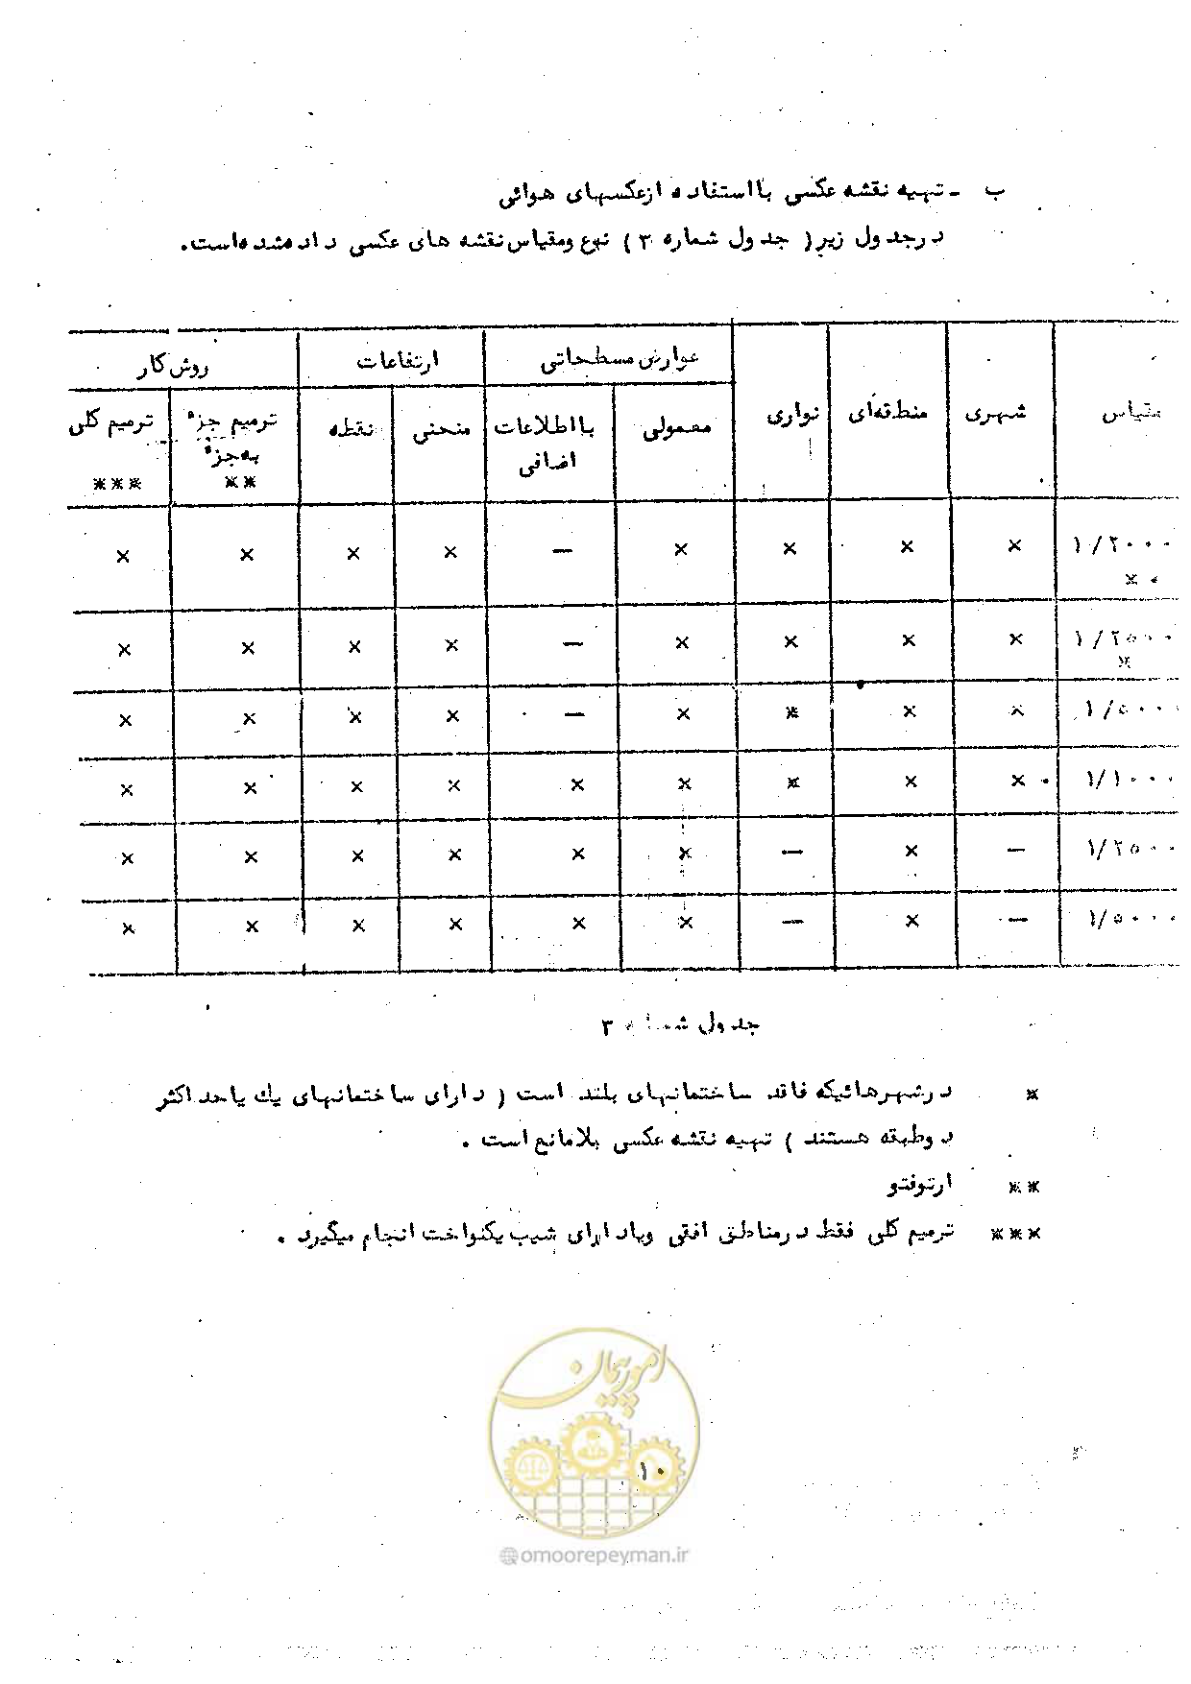 ب ـ تهیه نقشه عکسی با استفاده از عکسهای هوائی
در جدول زیر ( جدول شماره ۳ ) نوع ومقیاس نقشه های عکسی داده شده است.
مقیاس شهری منطقه‌ای نواری عوارض مسطحاتی ارتفاعات روش کار
معمولی با اطلاعات اضافی منحنی نقطه ترمیم جزء به جزء ** ترمیم کلی ***
۱/۲۰۰۰ * × × × × — × × × ×
۱/۲۵۰۰ * × × × × — × × × ×
۱/۵۰۰۰ × × × × — × × × ×
۱/۱۰۰۰۰ × × × × × × × × ×
۱/۲۵۰۰۰ — × — × × × × × ×
۱/۵۰۰۰۰ — × — × × × × × ×
جدول شماره ۳
* در شهرهائیکه فاقد ساختمانهای بلند است ( دارای ساختمانهای یك یا حد اکثر
دوطبقه هستند ) تهیه نقشه عکسی بلامانع است .
** ارتوفتو
*** ترمیم کلی فقط در مناطق افقی ویا دارای شیب یکنواخت انجام میگیرد .
امور پیمان
۱۰
@omoorepeyman.ir